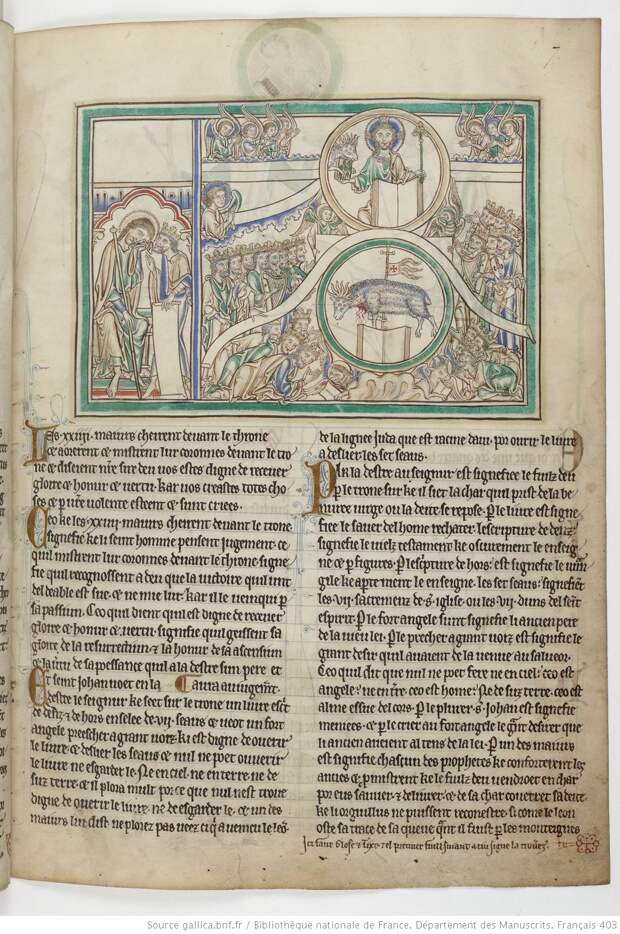 Les .xxiiii. maiurs cheirent devant le throne
e aorerent e mistrent lur coronnes devant le tro
ne e diseient nostre sire deu vos estes digne de recever
gloire e honur e vertu. kar vos creastes totes cho
ses e par vostre volente esteent e sunt criees.
Ceo ke les .xxiiii. maiurs cheirent devant le trone
signefie ke li seint homme pensent jugement e
quil mistrent lur coronnes devant le throne signe
fie quil recognoissent a deu que la victoire quil unt
del deable est sue e ne mie lur. kar il le venqui par
sa passium. Ceo quil dient quil est digne de recever
gloire e honur e vertu signefie quil
gloire de la resurrectiun e la honur de sa ascensiun
e la vertu de sa pessance quil a la destre sun pere. et
Et seint Johan voet en la
destre le seignur ke sect sur le trone un livre escrit
dedenz e de hors enselee de .vii. seaus e veot un fort
angele precher a grant voiz ki est digne de overir
le livre e deslier les seaus e nul ne poet overir
le livre ne esgarder le. Ne en ciel. ne en terre. ne de
suz terre. e il plora mult por ceo que nul nest trove
digne de overir le livre. ne de esgarder le. e un des
maiurs lui dist. ne plorez pas veez ci qi a vencu le leon
de la ligne Juda que est racine davi. por overir le livre
a deslier les set seaus.
Par la destre au seignur est signefiee le fiuz deu
Par le trone sur ke il siet la char quil prist de la be
neure virge ou la deite se repose. Par le livre est signe
fiee le saver del home rechater. lescripture de denz
signefie le vielz testament ke oscurement le enseig
ne e par figures. Par lescripture de hors est signefie le evan
gile ke apertement le enseigne. les set seaus signefient
les .vii. sacremenz de seinte iglise ou les .vii. duns del seint
espirit. Par le fort angele sunt signefie li ancien pere
de la vieu lei. Par le precher a grant voiz est signefie le
grant desir quil avaient de la venue au salveor.
Ceo quil dit que nul ne poet fere ne en ciel. ceo est
angele. ne en terre. ceo est home. Ne de suz terre. ceo est
alme essue del cors. Par le plurer seint Johan est signefie
par le crier au fort angele le grant desirer que
li ancien avaient al tens de la lei. Par un des maiurs
est signifie chascun des prophetes ke conforterent les
autres e prmistrent ke le fiuz deu vendroit en char
por eus sauver e delivrer. e de sa char coverret sa deite
ke li orguillus ne puissent reconestre si come le leon
oste sa trace de sa queue quant il fuit par les munteignes
Source gallica.bnf.fr / Bibliothèque nationale de France. Département des Manuscrits. Français 403